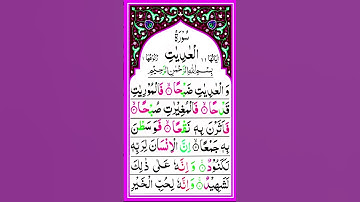 سُوْرَةُ
الْعٰدِيٰتِ
بِسْمِ اللّٰهِ الرَّحْمٰنِ الرَّحِيْمِ
وَالْعٰدِيٰتِ ضَبْحًا ۙ فَالْمُوْرِيٰتِ
قَدْحًا ۙ فَالْمُغِيْرٰتِ صُبْحًا ۙ
فَاَثَرْنَ بِهٖ نَقْعًا ۙ فَوَسَطْنَ
بِهٖ جَمْعًا ۙ اِنَّ الْاِنْسَانَ لِرَبِّهٖ
لَكَنُوْدٌ ۚ وَاِنَّهٗ عَلٰى ذٰلِكَ
لَشَهِيْدٌ ۚ وَاِنَّهٗ لِحُبِّ الْخَيْرِ